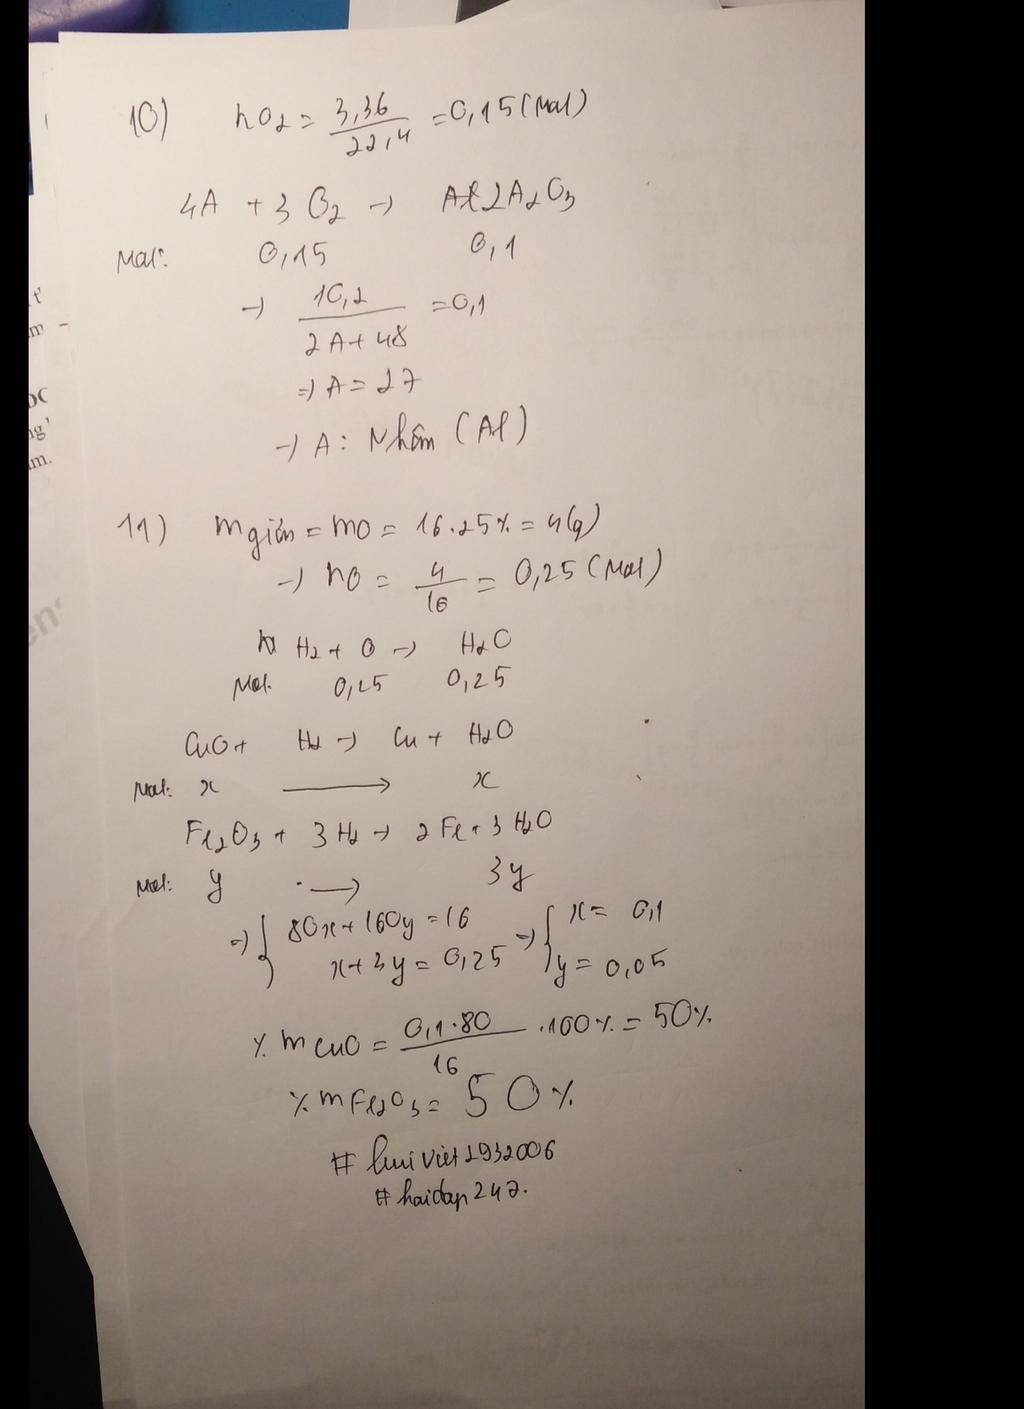 10) nO2 = 3,36 / 22,4 = 0,15 (mol)
4A + 3 O2 → 2A2O3
Mol: 0,15 0,1
→ 10,2 / 2A+48 = 0,1
→ A = 27
→ A: Nhôm (Al)
11) m giảm = mO = 16.25% = 4(g)
→ nO = 4 / 16 = 0,25 (mol)
H2 + O → H2O
Mol. 0,25 0,25
CuO + H2 → Cu + H2O
Mol: x → x
Fe2O3 + 3 H2 → 2 Fe + 3 H2O
Mol: y → 3y
⇒ { 80x + 160y = 16 ⇒ { x = 0,1
x + 3y = 0,25 y = 0,05
% mCuO = 0,1.80 / 16 .100% = 50%
% mFe2O3 = 50%
#hoidap247.
t'
m -
ng'
m.
en